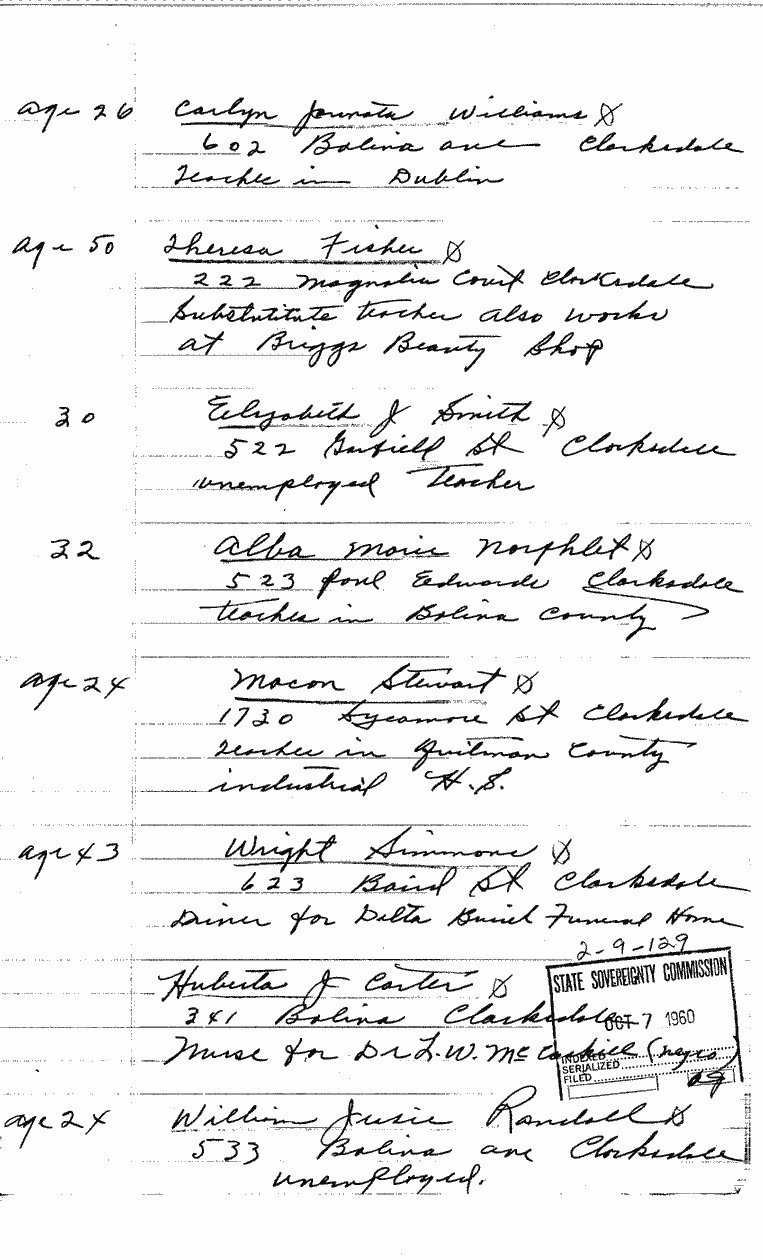 age 26 Carlyn Juanata Williams
602 Boliva ave Clarksdale
Teacher in Dublin
age 50 Theresa Fisher
222 Magnolia Court Clarksdale
Substitute teacher also works
at Briggs Beauty Shop
30 Elizabeth J Smith
522 Garfield St Clarksdale
unemployed Teacher
32 Alba Marie Norphlet
523 Paul Edwards Clarksdale
teacher in Boliva County
age 24 Macon Stewart
1730 Sycamore St Clarksdale
teacher in Quitman County
industrial H.S.
age 43 Wright Simmons
623 Baird St Clarksdale
Driver for Delta Burial Funeral Home
2-9-129
Huberta J Carter
STATE SOVEREIGNTY COMMISSION
341 Boliva Clarksdale
OCT 7 1960
Nurse for Dr L.W. Mc (negro)
INDEXED
SERIALIZED
FILED
age 24 William Jusie Randall
533 Boliva ave Clarksdale
unemployed.